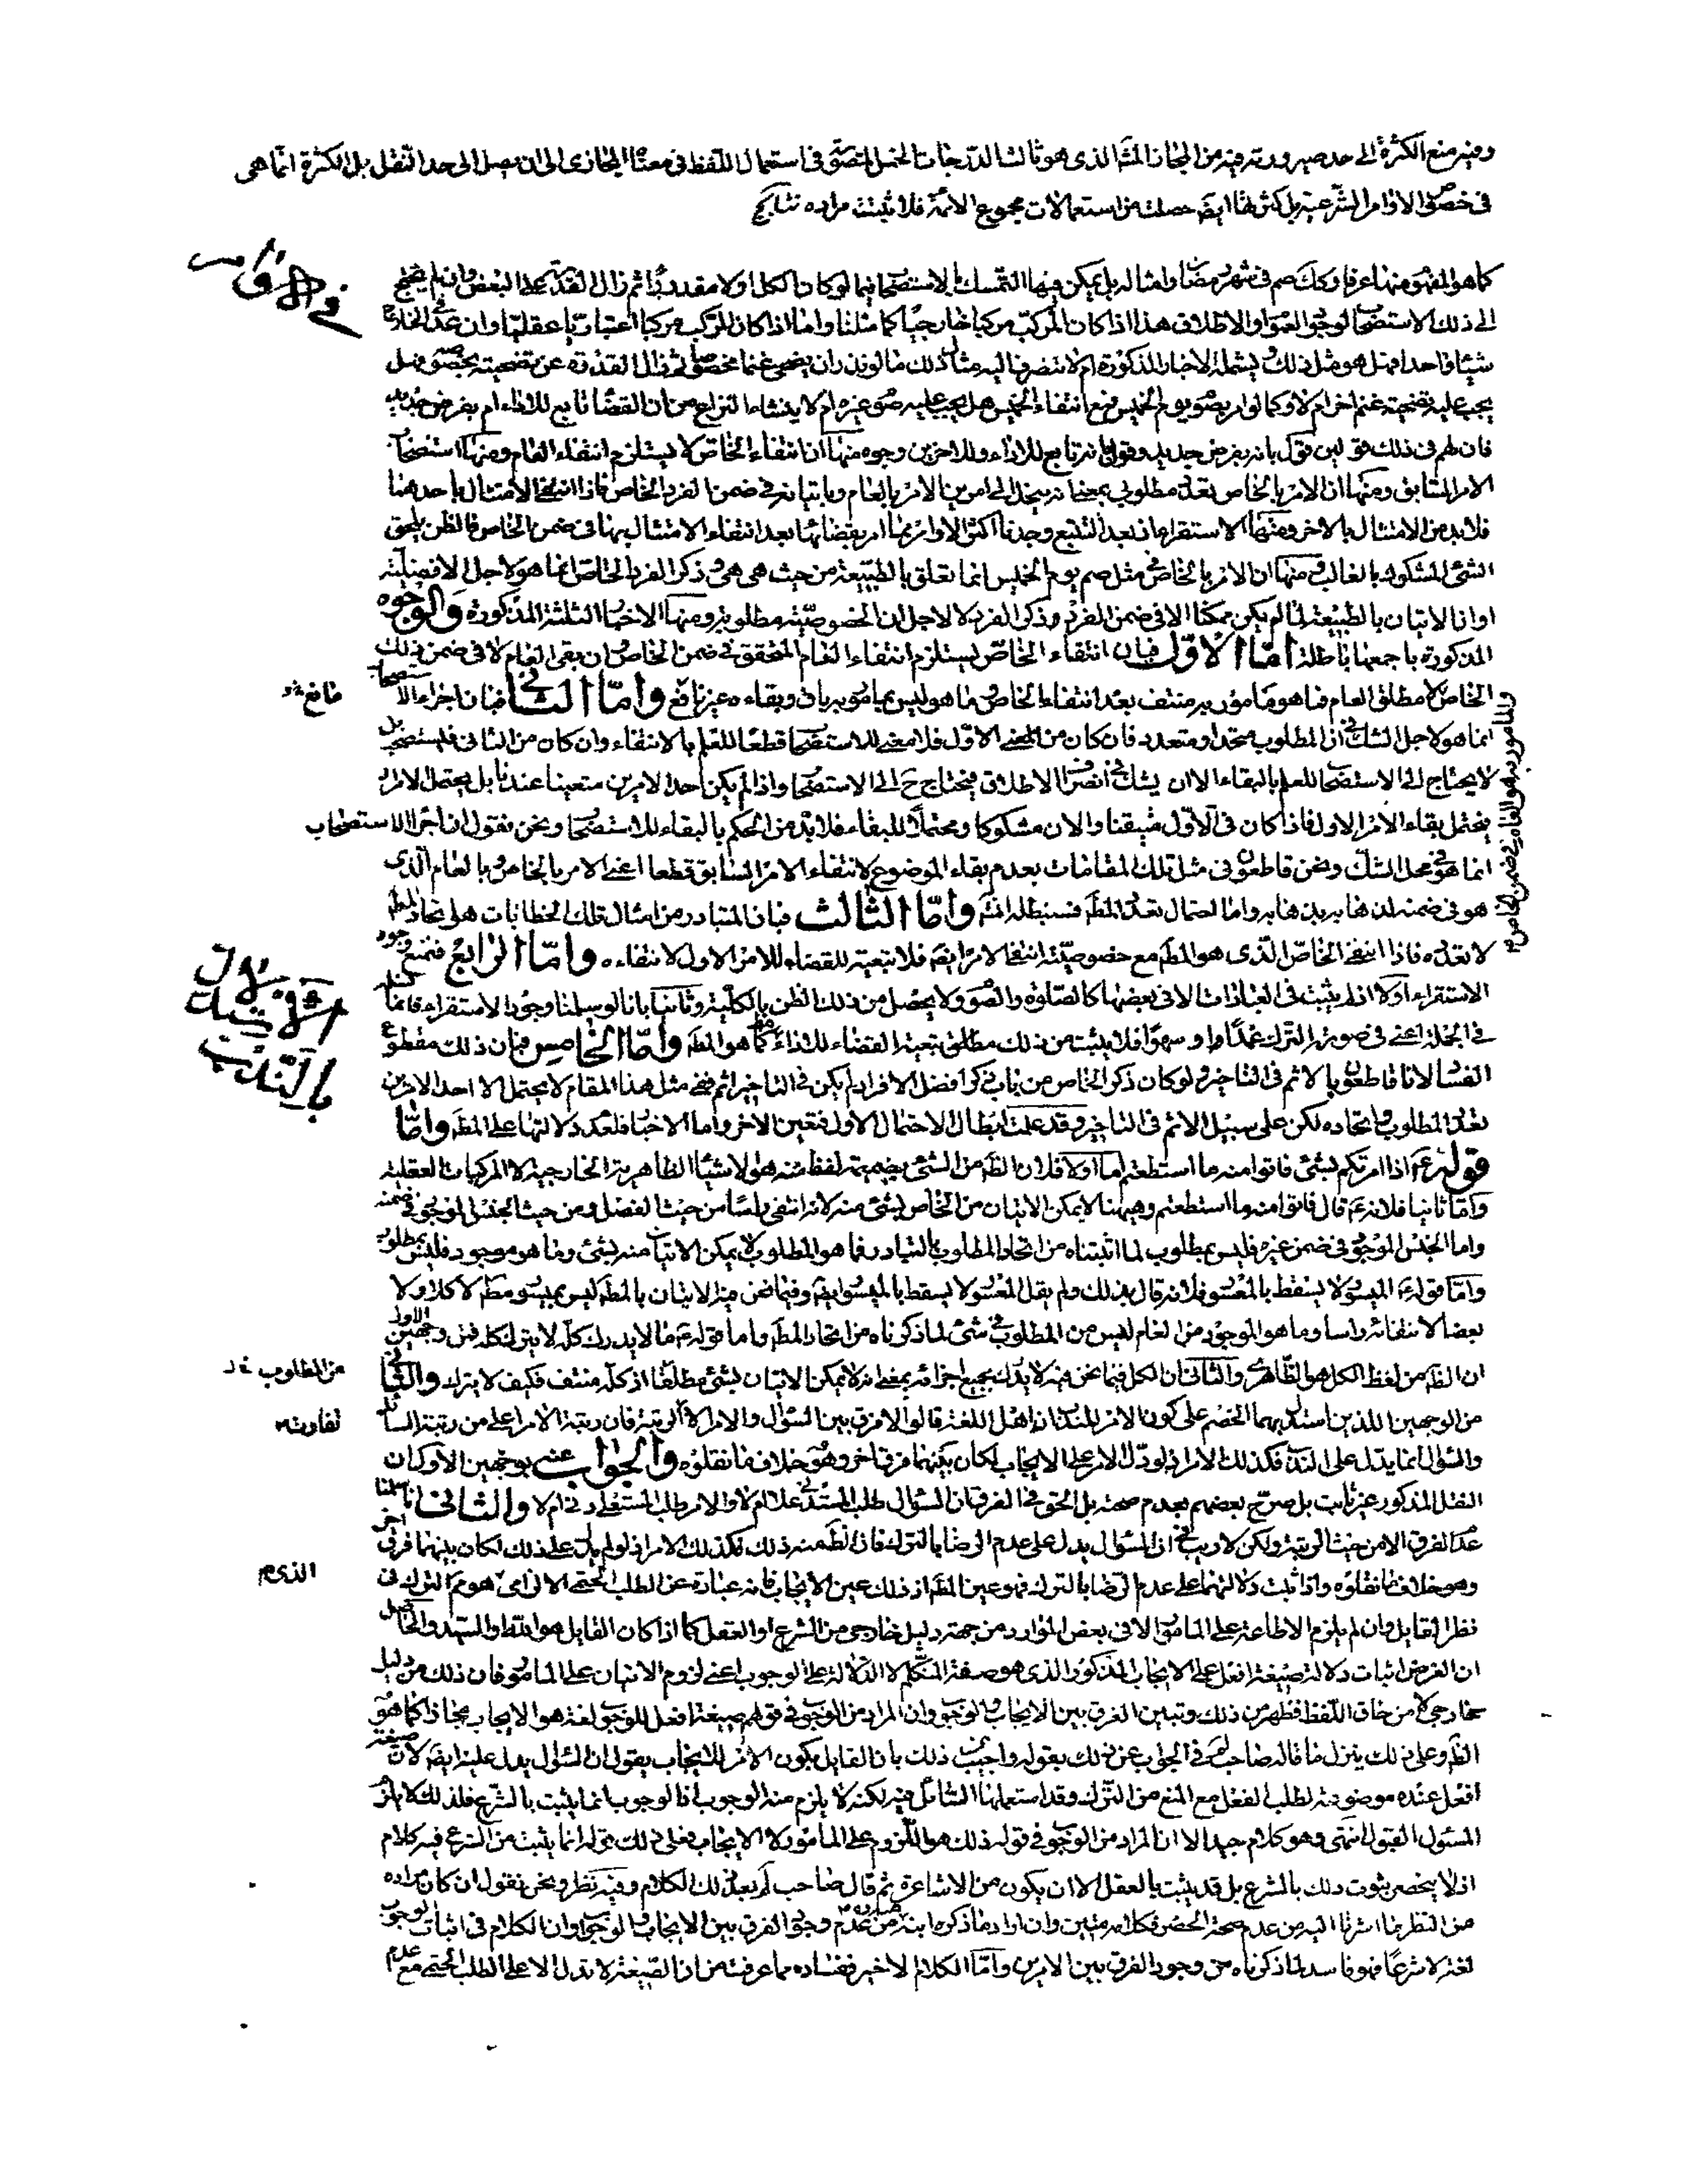 وفيه منع الكثرة الى حد صيرورته من المجاز الذى هو ثالث الدرجات الخمس المتصورة فى استعمال اللفظ فى معناه المجازى الى ان يصل الى حد النقل بل الكثرة انما هى
فى خصوص الاوامر الشرعية بل كثرتها ايضا حصلت من استعمالات مجموع الائمة فلا يثبت مراده
كما هو المفهوم منها عرفا وكك صم فى شهر رمضان وامثاله بل يمكن فيها التمسك بالاستصحاب فيما لو كان الكل اولا مقدورا ثم زال القدرة على البعض وان لم يحتج
الى ذلك الاستصحاب لوجود العموم او الاطلاق هذا اذا كان المركب مركبا خارجيا كما مثلنا واما اذا كان المركب مركبا اعتباريا عقليا وان عد فى الخارج
شيئا واحدا فهل هو مثل ذلك ويشمله الاخبار المذكورة ام لا تنصرف اليه مثال ذلك ما لو نذر ان يضحى غنما مخصوصا ثم زال القدرة عن تضحيته بخصوصه فهل
يجب عليه تضحية غنم اخر ام لا وكما لو امر بصوم يوم الخميس فمع انتفاء الخميس هل يجب عليه صوم غيره ام لا ينشاء النزاع من ان القضاء تابع للاداء ام بفرض جديد
فان لهم فى ذلك قولين قول بانه بفرض جديد وقول بانه تابع للاداء وللاخرين وجوه منها ان انتفاء الخاص لا يستلزم انتفاء العام ومنها استصحاب
الامر السابق ومنها ان الامر بالخاص تعدد مطلوبى بمعنى انه ينحل الى امرين الامر بالعام وباتيانه فى ضمن الفرد الخاص فاذا انتفى الامتثال باحدهما
فلا بد من الامتثال بالاخر ومنها الاستقراء اذ بعد التتبع وجدنا اكثر الاوامر مما امر بقضائها بعد انتفاء الامتثال بها فى ضمن الخاص فالظن يلحق
الشئ المشكوك بالغالب ومنها ان الامر بالخاص فى مثل صم يوم الخميس انما تعلق بالطبيعة من حيث هى هى وذكر الفرد الخاص انما هو لاجل الافضلية
او ان الاتيان بالطبيعة لما لم يكن ممكنا الا فى ضمن الفرد وذكر الفرد لا لاجل ان الخصوصية مطلوبة ومنها الاخبار الثلثة المذكورة والوجوه
المذكورة باجمعها باطلة اما الاول فبان انتفاء الخاص يستلزم انتفاء العام المتحقق فى ضمن الخاص وان بقى العام لا فى ضمن ذلك
الخاص لا مطلق العام فما هو مامور به منتف بعد انتفاء الخاص وما هو ليس بمامور به باق وبقاءه غير نافع واما الثانى فبان اجراء الاستصحاب
مانع
انما هو لاجل الشك فى ان المطلوب متحد او متعدد فان كان من المعنى الاول فلا معنى للاستصحاب قطعا للعلم بالانتفاء وان كان من الثانى فليستصحب بل
لا يحتاج الى الاستصحاب للعلم بالبقاء الا ان يشك فى انصراف الاطلاق فيحتاج ح الى الاستصحاب واذا لم يكن احد الامرين متعينا عندنا بل يحتمل الامران
يحتمل بقاء الامر الاول فاذا كان فى الاول متيقنا والان مشكوكا ومحتملا للبقاء فلا بد من الحكم بالبقاء للاستصحاب ونحن نقول ان اجراء الاستصحاب
انما هو فى محل الشك ونحن قاطعون فى مثل تلك المقامات بعدم بقاء الموضوع لانتفاء الامر السابق قطعا اعنى الامر بالخاص وبالعام الذى
والمامور به هو العام فى ضمن الخاص م
هو فى ضمنه لذهابه بذهابه واما احتمال تعدد المط فسنبطله انش واما الثالث فبان المتبادر من امثال تلك الخطابات هو اتحاد المط
لا تعدده فاذا انتفى الخاص الذى هو المط مع خصوصيته انتفى الامر ايضا فلا تبعية للقضاء للامر الاول لانتفاءه واما الرابع فنمنع وجود
الاستقراء اولا اذ لم يثبت فى العبادات الا فى بعضها كالصلوة والصوم ولا يحصل من ذلك الظن بالكلية وثانيا بانا لو سلمنا وجود الاستقراء فانما
فى الجملة اعنى فى صورة الترك عمدا او سهوا فلا يثبت من ذلك مطلق تبعية القضاء للاداء كما هو المط واما الخامس فبان ذلك مقطوع
الفساد لانا قاطعون بالاثم فى التاخير ولو كان ذكر الخاص من باب ذكر افضل الافراد لم يكن فى التاخير اثم ففى مثل هذا المقام لا يحتمل الا احد الامرين
تعدد المطلوب واتحاده لكن على سبيل الاثم فى التاخير وقد علمت ابطال الاحتمال الاول فتعين الاخر واما الاخبار فلعدم دلالتها على المط واما
قوله ع اذا امرتكم بشئ فاتوا منه ما استطعتم اما اولا فلان الظ من الشئ بضميمة لفظ منه هو الاشياء الظاهرية الخارجية لا المركبات العقلية
واما ثانيا فلانه ع قال فاتوا منه ما استطعتم وهيهنا لا يمكن الاتيان من الخاص بشئ منه لانه انتفى راسا من حيث الفصل ومن حيث الجنس الموجود فى ضمنه
واما الجنس الموجود فى ضمن غيره فليس بمطلوب لما اثبتناه من اتحاد المطلوب بالتبادر فما هو المطلوب لا يمكن الاتيان منه بشئ وما هو موجود فليس بمطلوب
واما قوله ع الميسور لا يسقط بالمعسور فلانه قال بذلك ولم يقل المعسور لا يسقط بالميسور ايضا وفيما نحن فيه الاتيان بالمط ليس بميسور مط لا كلا ولا
بعضا لانتفائه راسا وما هو الموجود من العام ليس من المطلوب فى شئ لما ذكرناه من اتحاد المط واما قوله ع ما لا يدرك كله لا يترك كله فمن وجهين الاول
ان الظ من لفظ الكل هو الظاهرى والثانى ان الكل فيما نحن فيه لا يدرك بجميع اجزائه بمعنى انه لا يمكن الاتيان بشئ مطلقا اذ كله منتف فكيف لا يترك والثانى
من المطلوب خ ل
من الوجهين اللذين استدل بهما الخصم على كون الامر للندب ان اهل اللغة قالوا لا فرق بين السؤال والامر الا الرتبة فان رتبة الامر اعلى من رتبة السائل
والسؤال انما يدل على الندب فكذلك الامر اذ لو دل الامر على الايجاب لكان بينهما فرق اخر وهو خلاف ما نقلوه والجواب عنه بوجهين الاول ان
النقل المذكور غير ثابت بل صرح بعضهم بعدم صحته بل الحق فى الفرق ان السؤال طلب المستدنى علا ام لا والامر طلب المستعلى دنى ام لا والثانى انا سلمنا
عدم الفرق الا من حيث الرتبة ولكن لا ريب فى ان السؤال يدل على عدم الرضا بالترك فان الظ منه ذلك فكذلك الامر اذ لو لم يدل على ذلك لكان بينهما فرق اخر
وهو خلاف ما نقلوه واذا ثبت دلالتهما على عدم الرضا بالترك فهو عين المط اذ ذلك عين الايجاب فانه عبارة عن الطلب الحتمى الالزامى هو ذم الترك فى
الذى م
نظر القايل وان لم يلزم الاطاعة على المامور الا فى بعض الموارد من جهة دليل خارجى من الشرع او العقل كما اذا كان القايل هو الله او السيد والحاصل
ان الغرض اثبات دلالة صيغة افعل على الايجاب المذكور الذى هو صفة المتكلم لا الدلالة على الوجوب اعنى لزوم الاتيان على المامور فان ذلك من دليل
خارجى لا من حاق اللفظ فظهر من ذلك وتبين الفرق بين الايجاب والوجوب وان المراد من الوجوب فى قولهم صيغة افعل للوجوب لغة هو الايجاب مجازا كما هو
الظ وعلى ذلك ينزل ما قاله صاحب لم فى الجواب عن ذلك بقوله واجيب عن ذلك بان القايل بكون الامر للايجاب يقول ان السؤال يدل عليه ايضا لان صيغة
افعل عنده موضوعة لطلب الفعل مع المنع من الترك وقد استعملها السائل فيه لكنه لا يلزم منه الوجوب اذ الوجوب انما يثبت بالشرع فلذلك لا يلزم
المسئول القبول انتهى وهو كلام جيد الا ان المراد من الوجوب فى قوله ذلك هو اللزوم على المامور لا الايجاب فعلى ذلك قوله انما يثبت من الشرع فيه كلام
اذ لا ينحصر ثبوت ذلك بالشرع بل قد يثبت بالعقل الا ان يكون من الاشاعرة ثم قال صاحب لم بعد ذلك الكلام وفيه نظر ونحن نقول ان كان مراده
من النظر ما اشرنا اليه من عدم صحة الحصر فكلامه متين وان اراد ما ذكره ابنه من عدم وجود الفرق بين الايجاب والوجوب وان الكلام فى اثبات الوجوب
لغة لا شرعا فهو فاسد لما ذكرناه من وجود الفرق بين الامرين واما الكلام الاخير ففساده مما عرفت من ان الصيغة لا تدل الا على الطلب الحتمى مع عدم